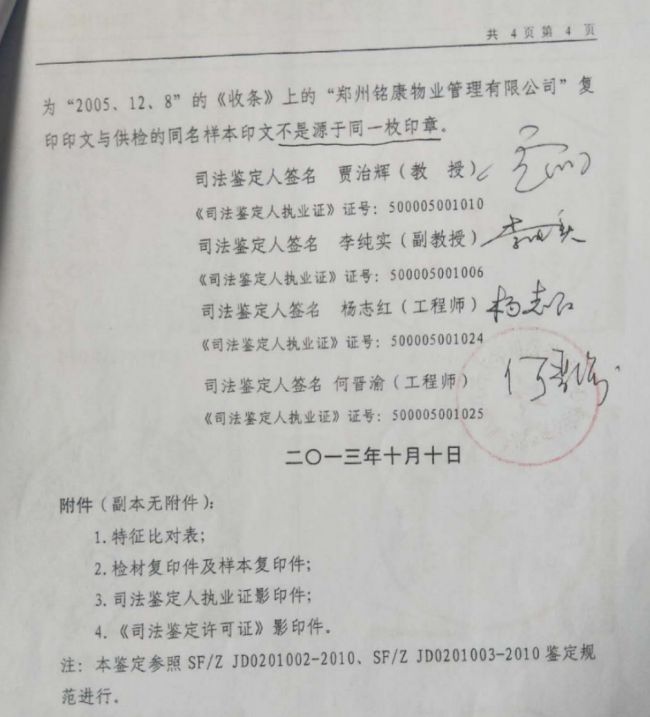 共 4 页 第 4 页
为“2005、12、8”的《收条》上的“郑州铭康物业管理有限公司”复
印印文与供检的同名样本印文不是源于同一枚印章。
司法鉴定人签名 贾治辉（教 授）
《司法鉴定人执业证》证号：500005001010
司法鉴定人签名 李纯实（副教授）李纯实
《司法鉴定人执业证》证号：500005001006
司法鉴定人签名 杨志红（工程师）杨志红
《司法鉴定人执业证》证号：500005001024
司法鉴定人签名 何晋渝（工程师）何晋渝
《司法鉴定人执业证》证号：500005001025
二〇一三年十月十日
附件（副本无附件）：
1.特征比对表；
2.检材复印件及样本复印件；
3.司法鉴定人执业证影印件；
4.《司法鉴定许可证》影印件．
注：本鉴定参照 SF/Z JD0201002-2010、SF/Z JD0201003-2010 鉴定规
范进行．